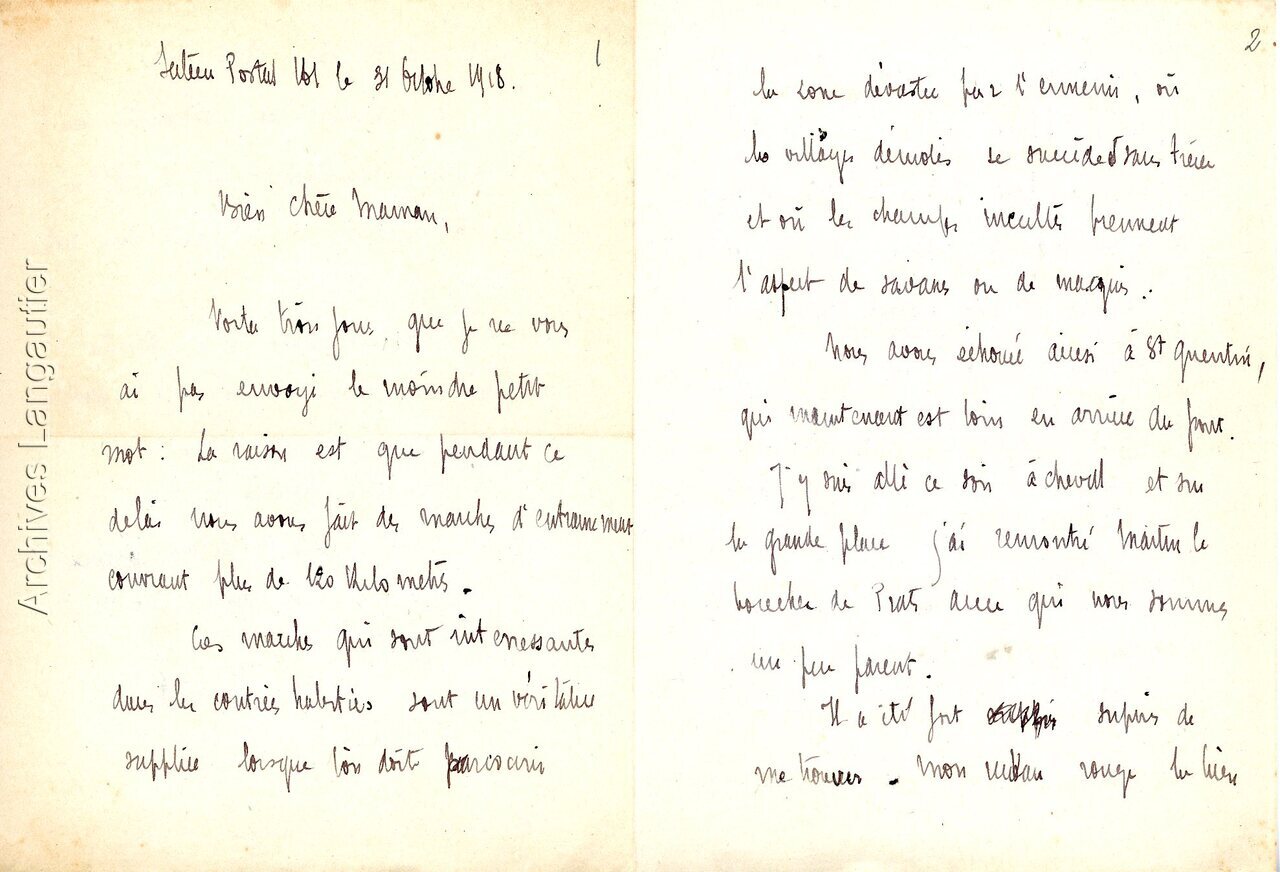 1
Secteur Postal 161 le 31 Octobre 1918.
Bien chère Maman,
Voilà trois jours, que je ne vous
ai pas envoyé le moindre petit
mot : La raison est que pendant ce
délai nous avons fait des marches d'entrainement
couvrant plus de 120 Kilomètres.
Ces marches qui sont interressantes
dans les contrées habitées sont un véritable
supplice lorsque l'on doit parcourir
2.
la zone dévastée par l'ennemi, où
les villages démolis se succèdent sans trève
et où les champs incultes prennent
l'aspect de savanes ou de maquis.
Nous avons échoué ainsi à St Quentin,
qui maintenant est loin en arrière du front.
J'y suis allé ce soir à cheval et sur
la grande place j'ai rencontré Martin le
boucher de Prats avec qui nous sommes
un peu parent.
Il a été fort surpris de
me trouver. Mon ruban rouge l'a bien
Archives Langautier